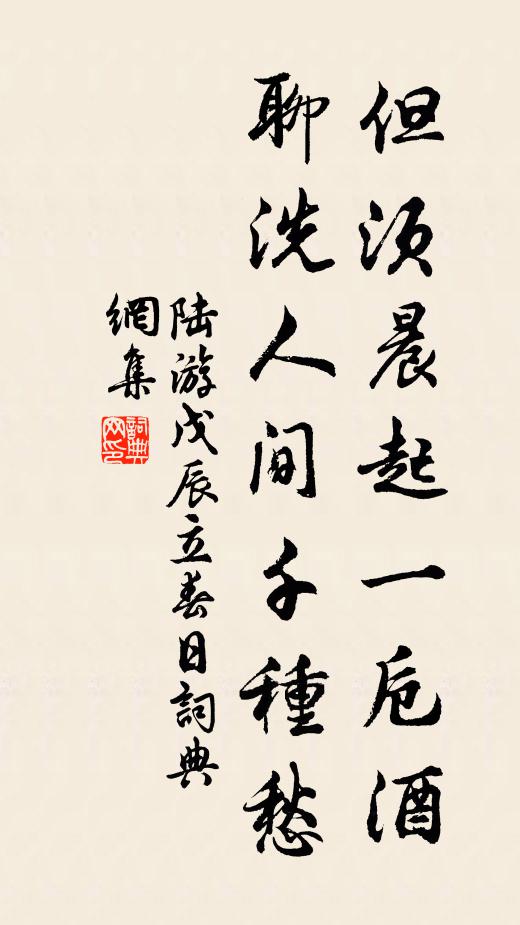 但須晨起一卮酒
聊洗人間千種愁
陆游戊辰立春日詞典
網集
詞典
网印